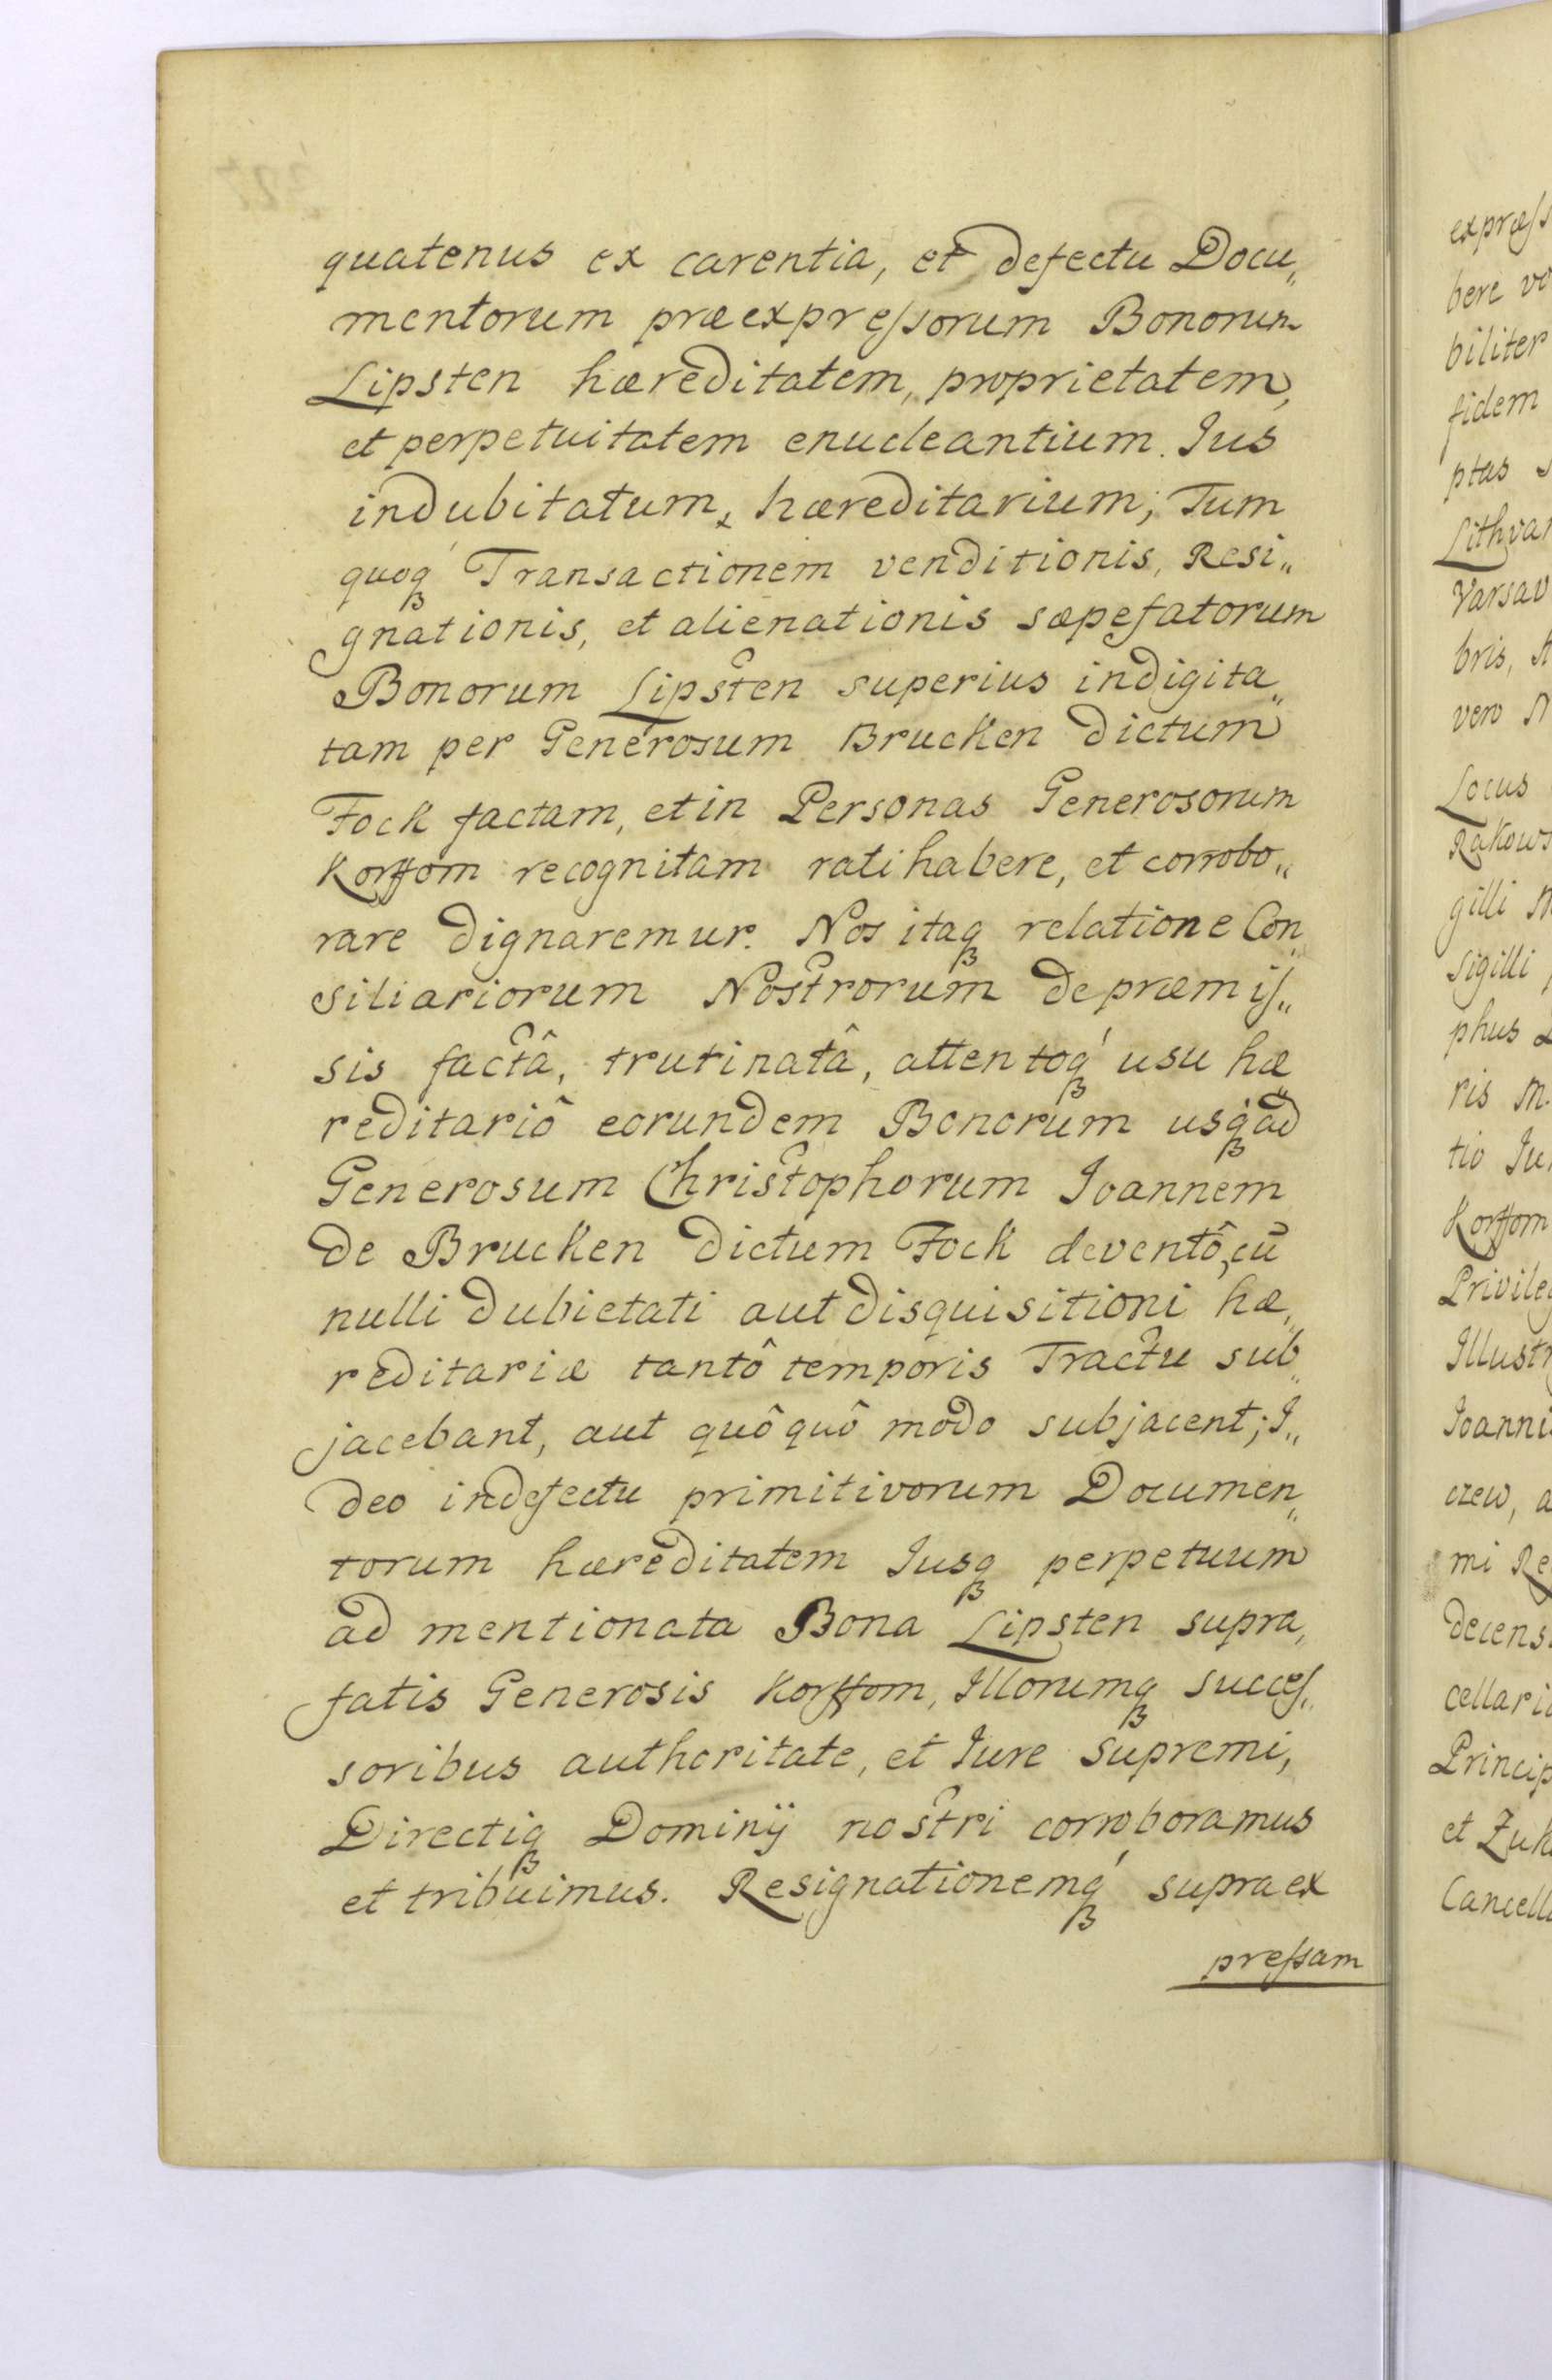 quatenus ex carentia, et defectu Docu„
mentorum præexpressorum Bonorum
Lipsten hæreditatem, proprietatem,
et perpetuitatem enucleantium. Jus
indubitatum, hæreditarium; Tum
quoqꝫ Transactionem venditionis, Resi„
gnationis, et alienationis sæpefatorum
Bonorum Lipsten superius indigita„
tam per Generosum Brucken dictum
Fock factam, et in Personas Generosorum
Korffom recognitam ratihabere, et corrobo„
rare dignaremur. Nos itaqꝫ relatione Con„
siliariorum Nostrorum de præmis„
sis factâ, trutinatâ, attentoqꝫ usu hæ
reditariô eorundem Bonorum usqꝫ ad
Generosum Christophorum Joannem
de Brucken dictum Fock deventô, cū
nulli dubietati aut disquisitioni hæ„
reditariæ tantô temporis Tractu sub„
jacebant, aut quôquô modo subjacent; I„
deo in defectu primitivorum Documen„
torum hæreditatem Jusqꝫ perpetuum
ad mentionata Bona Lipsten supra„
fatis Generosis Korffom, Illorumqꝫ succes„
soribus authoritate, et Jure Supremi,
Directiqꝫ Dominÿ nostri corroboramus
et tribuimus. Resignationemqꝫ supraex
pressam
express
bere vo
biliter
fidem
ptas s
Lithvan
Varsav
bris, A
vero N
Locus
Rakows
gilli M
sigilli p
phus
ris M.
tio Ju
Korffom
Privileg
Illustr
Joanni
czew, a
mi Re
decens
cellari
Princip
et Zuk
Cancell